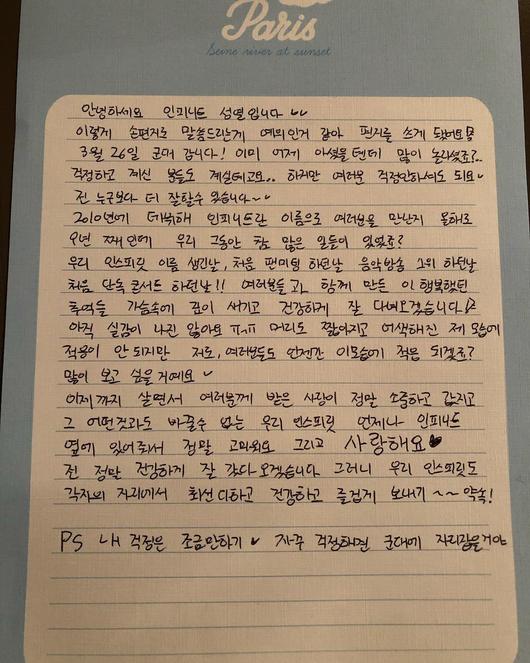 Paris
Seine river at sunset
안녕하세요 인피니트 성열입니다 ᵕᵕ
이렇게 손편지로 말씀드리는게 예의인거 같아 편지를 쓰게 됐어요
3월 26일 군대 갑니다! 이미 어제 아셨을텐데 많이 놀라셨죠?..
걱정하고 계신 분들도 계실테고요.. 하지만 여러분 걱정안하셔도 되요
전 누구보다 더 잘할수 있습니다~
2010년에 데뷔해 인피니트란 이름으로 여러분을 만난지 올해로
9년 째인데 우리 그동안 참 많은 일들이 있었죠?
우리 인스피릿 이름 생긴날, 처음 팬미팅 하던날 음악방송 1위 하던날
처음 단독 콘서트 하던날!! 여러분들과 함께 만든 이 행복했던
추억들 가슴속에 깊이 새기고 건강하게 잘 다녀오겠습니다!
아직 실감이 나진 않아요 ㅠㅠ 머리도 짧아지고 어색해진 제 모습에
적응이 안 되지만 저도, 여러분들도 언젠간 이모습에 적응 되겠죠?
많이 보고 싶을거예요
이제까지 살면서 여러분께 받은 사랑이 정말 소중하고 값지고
그 어떤것과도 바꿀수 없는 우리 인스피릿 언제나 인피니트
옆에 있어줘서 정말 고마워요 그리고 사랑해요♥
전 정말 건강하게 잘 갔다오겠습니다 그러니 우리 인스피릿도
각자의 자리에서 최선 다하고 건강하고 즐겁게 보내기~~ 약속!
PS 내 걱정은 조금만하기 자꾸 걱정하면 군대에 자리잡을거야